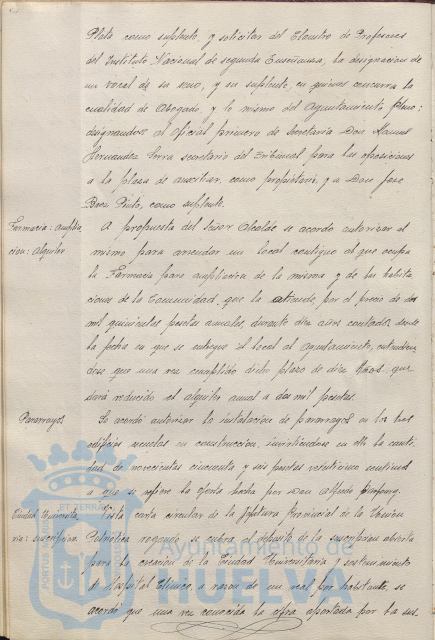 Plata como suplente, y solicitar del Claustro de Profesores
del Instituto Nacional de segunda Enseñanza, la designación de
un vocal de su seno, y su suplente, en quienes concurra la
cualidad de Abogado, y lo mismo del Ayuntamiento Pleno;
designandose al oficial primero de Secretaría Don Manuel
Hernandez Serra secretario del Tribunal para las oposiciones
a la plaza de auxiliar, como propietario, y a Don José
Baez Pinto, como suplente.
Farmacia: amplia
ción: Alquiler
A propuesta del señor Alcalde se acordó autorizar al
mismo para arrendar un local contiguo al que ocupa
la Farmacia para ampliación de la misma y de las habita
ciones de la Comunidad que la atiende, por el precio de dos
mil quinientas pesetas anuales, durante diez años contados desde
la fecha en que se entregue el local al Ayuntamiento, entendien
dose que una vez cumplido dicho plazo de diez años, que
dará reducido el alquiler anual a dos mil pesetas.
Pararrayos
Se acordó autorizar la instalación de pararrayos en los tres
edificios escuelas en construcción, invirtiéndose en ello la canti
dad de novecientas cincuenta y seis pesetas veinticinco centimos
a que se refiere la oferta hecha por Don Alfredo
Ciudad Universita
ria: suscripción
Vista carta circular de la Jefatura Provincial de la Unión
Patriótica rogando se cubra el déposito de la suscripción abierta
para la creación de la Ciudad Universitaria y sostenimiento
del Hospital Clínico, a razón de un real por habitante, se
acordó que una vez conocida la cifra aportada por la sus
Ayuntamiento de
HUELVA
PORTUS
ET TERRÆ